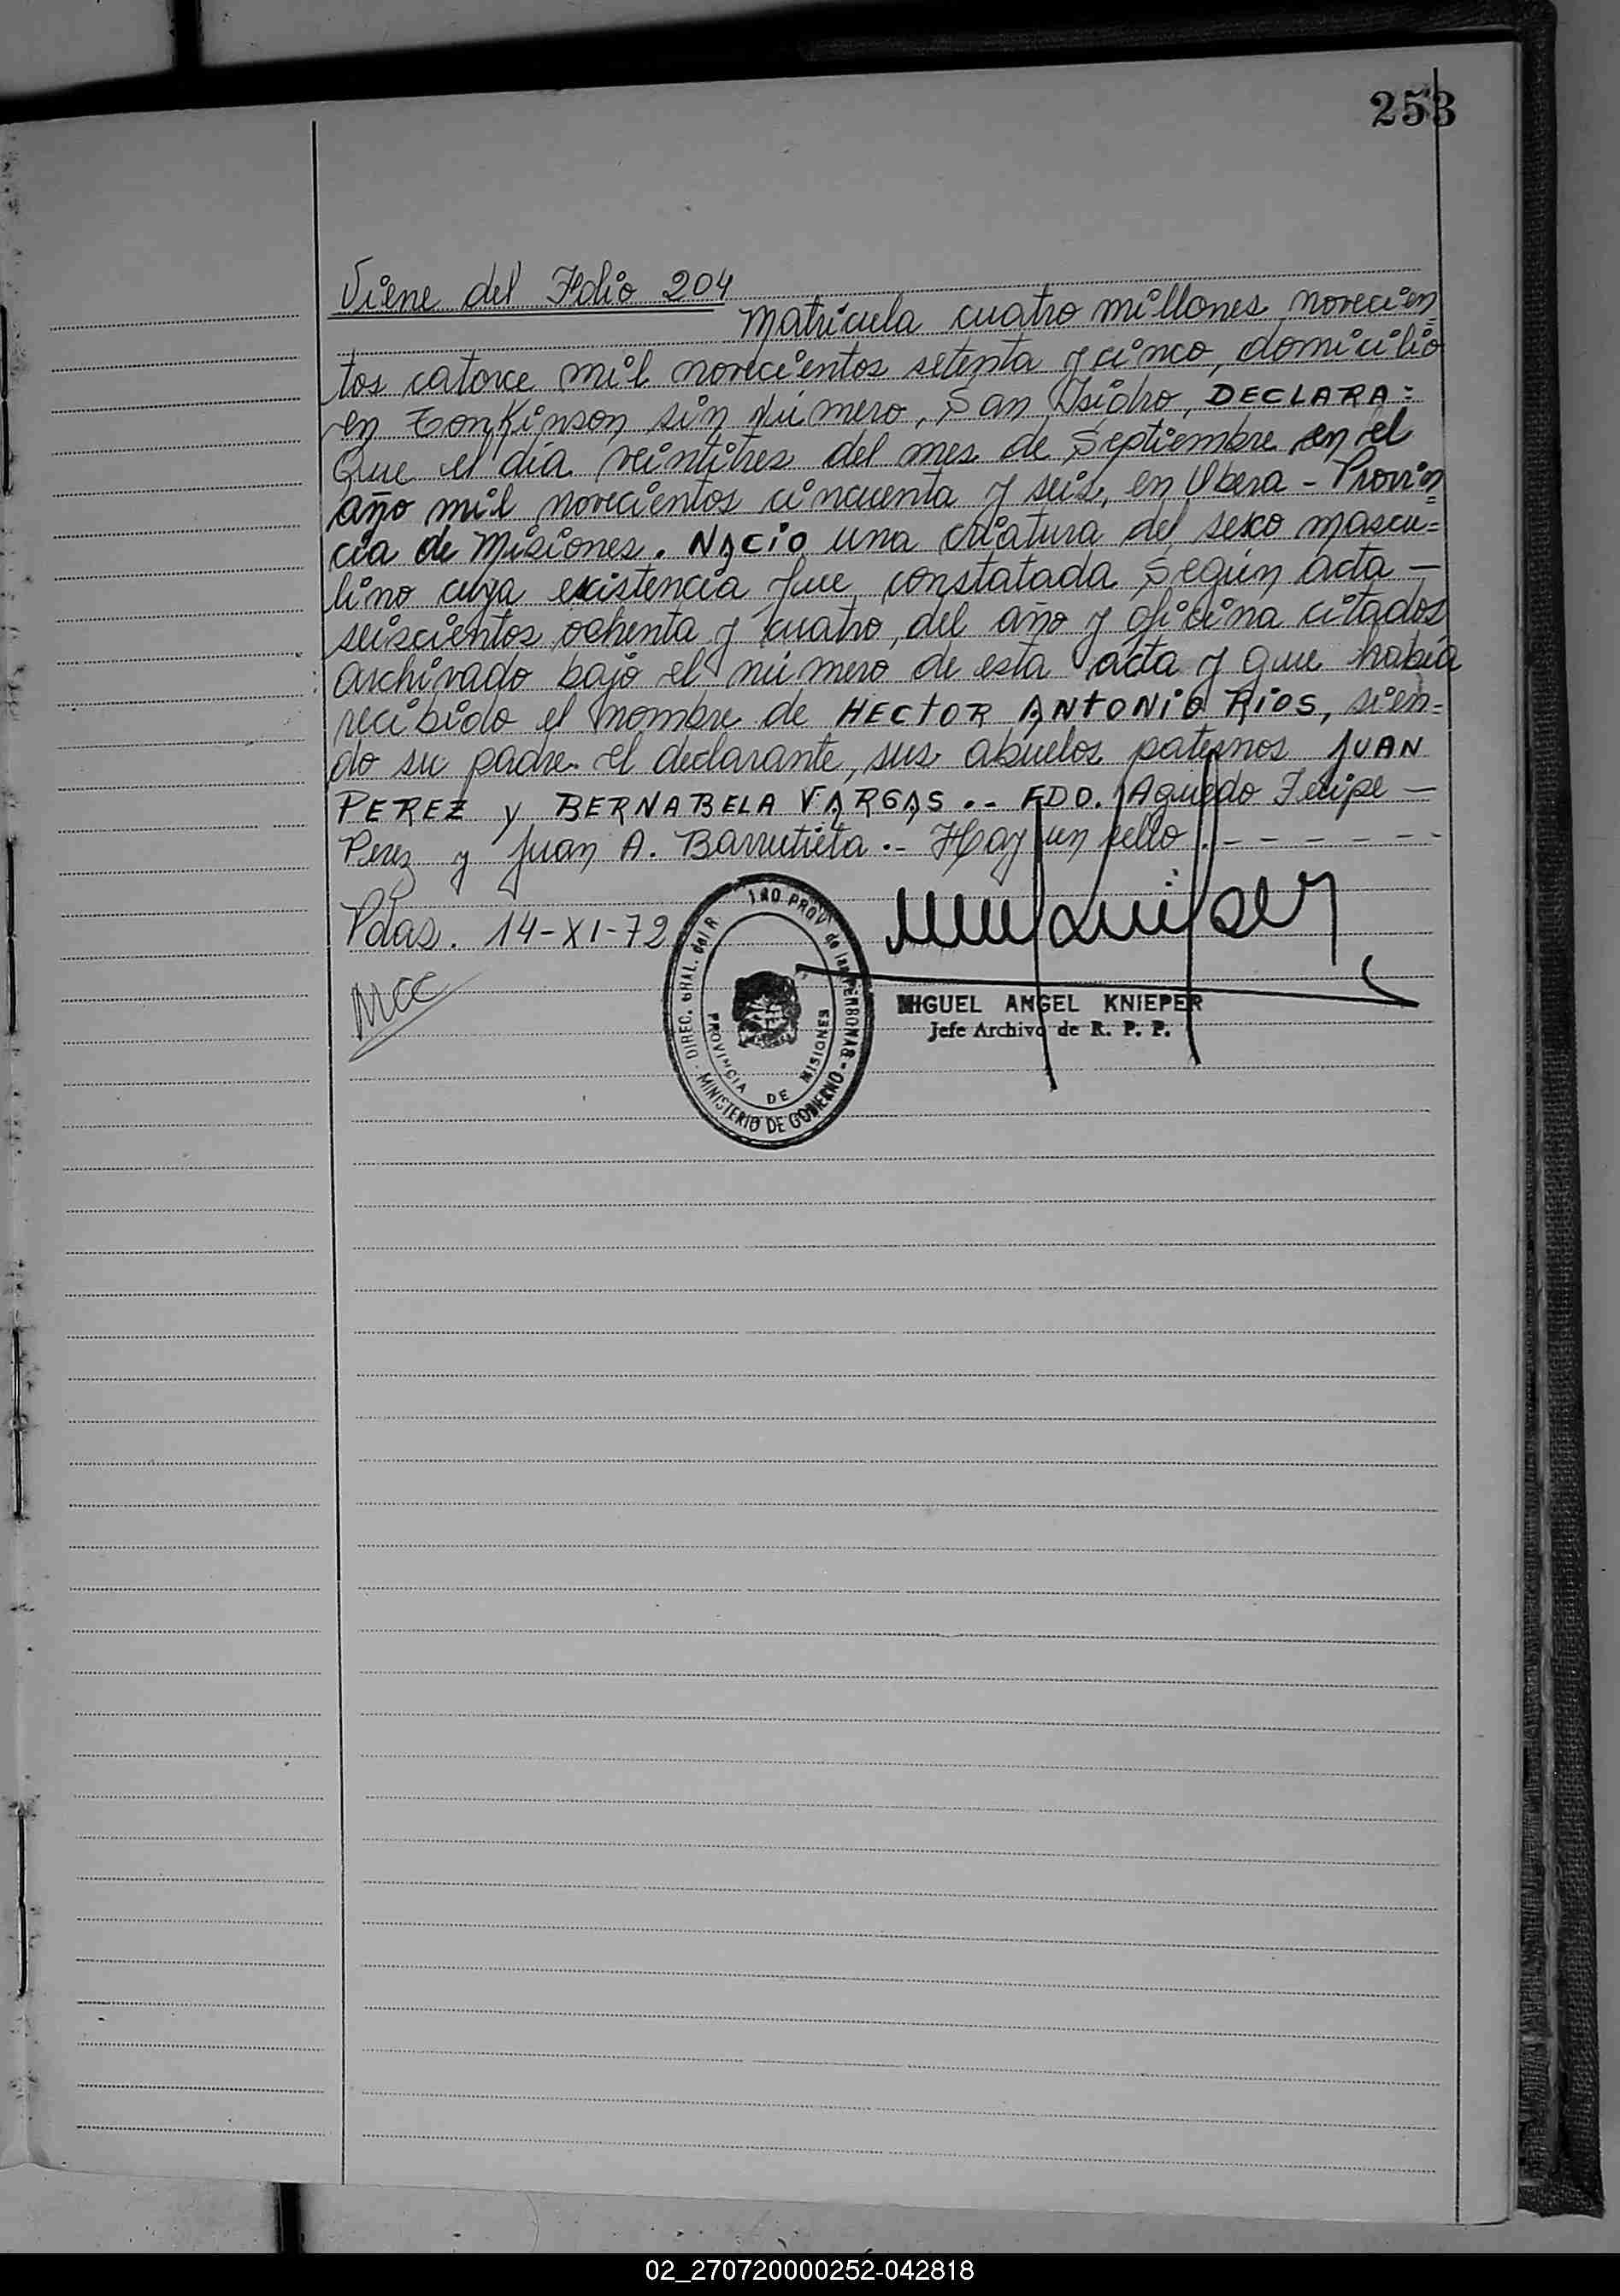 253
Viene del Folio 204
Matricula cuatro millones novecien=
tos catorce mil novecientos setenta y cinco, domicilio
en Tomkinson sin número, San Isidro, DECLARA:
Que el día veintitres del mes de Septiembre en el
año mil novecientos cincuenta y seis, en Obera - Provin=
cia de Misiones. NACIO una criatura del sexo mascu=
lino cuya existencia fue constatada según acta —
seiscientos ochenta y cuatro, del año y oficina citados
archivado bajo el número de esta acta y que había
recibido el nombre de HECTOR ANTONIO RIOS, sien=
do su padre el declarante, sus abuelos paternos JUAN
PEREZ y BERNABELA VARGAS .- FDO. Aguedo Felipe —
Perez y Juan A. Barrutieta .- Hay un sello .- - - - - -
Pdas. 14-XI-72
MCC
DIREC. GRAL. del R. PROV. de las PERSONAS
MINISTERIO DE GOBIERNO
PROVINCIA DE MISIONES
MIGUEL ANGEL KNIEPER
Jefe Archivo de R. P. P.
02_270720000252-042818